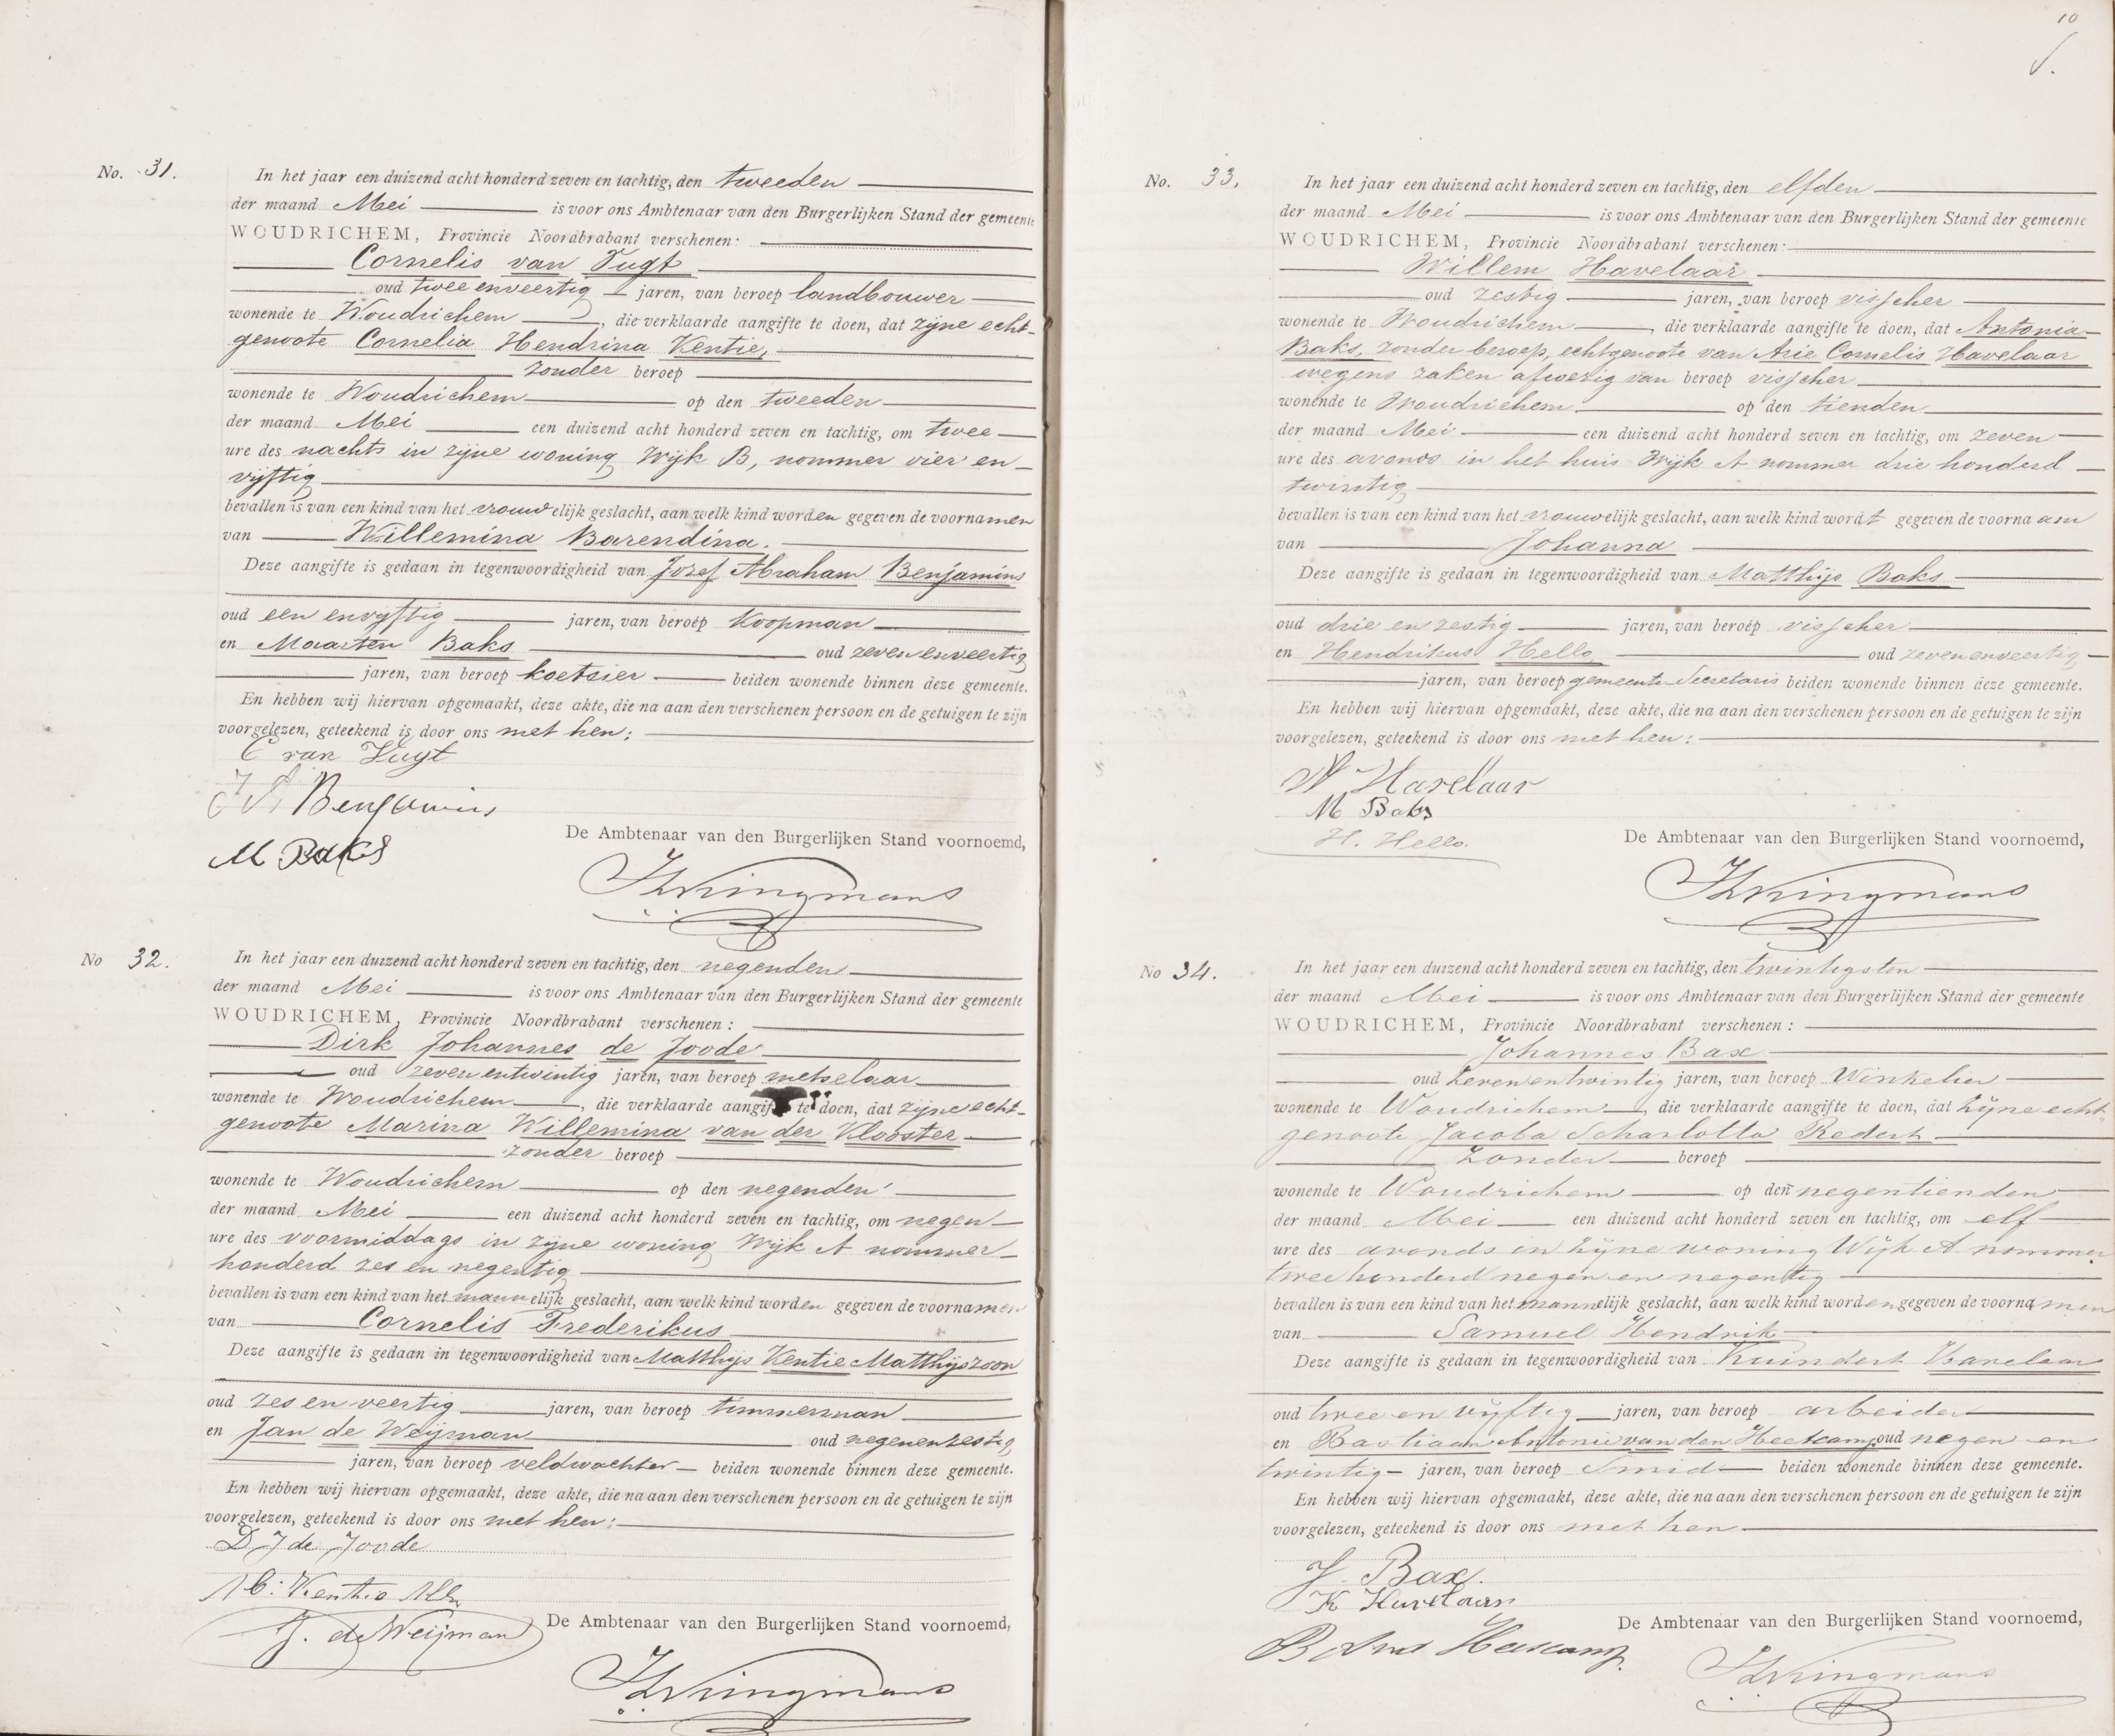 No. 31.
In het jaar een duizend acht honderd zeven en tachtig, den tweeden
der maand Mei is voor ons Ambtenaar van den Burgerlijken Stand der gemeente
WOUDRICHEM, Provincie Noordbrabant verschenen:
Cornelis van Vugt
oud twee enveertig jaren, van beroep landbouwer
wonende te Woudrichem, die verklaarde aangifte te doen, dat zijne echt-
genoote Cornelia Hendrina Kentie,
zonder beroep
wonende te Woudrichem op den tweeden
der maand Mei een duizend acht honderd zeven en tachtig, om twee
ure des nachts in zijne woning Wijk B, nommer vier en
vijftig
bevallen is van een kind van het vrouwelijk geslacht, aan welk kind worden gegeven de voornamen
van Willemina Barendina.
Deze aangifte is gedaan in tegenwoordigheid van Jozef Abraham Benjamins
oud een envijftig jaren, van beroep Koopman
en Maarten Baks oud zevenenveertig
jaren, van beroep koetsier beiden wonende binnen deze gemeente.
En hebben wij hiervan opgemaakt, deze akte, die na aan den verschenen persoon en de getuigen te zijn
voorgelezen, geteekend is door ons met hen:
C van Vugt
J A Benjamins
M Baks
De Ambtenaar van den Burgerlijken Stand voornoemd,
No 32.
In het jaar een duizend acht honderd zeven en tachtig, den negenden
der maand Mei is voor ons Ambtenaar van den Burgerlijken Stand der gemeente
WOUDRICHEM, Provincie Noordbrabant verschenen:
Dirk Johannes de Joode
oud zeven entwintig jaren, van beroep metselaar
wonende te Woudrichem, die verklaarde aangifte te doen, dat zijne echt-
genoote Marina Willemina van der Klooster
zonder beroep
wonende te Woudrichem op den negenden
der maand Mei een duizend acht honderd zeven en tachtig, om negen
ure des voormiddags in zijne woning Wijk A nommer
honderd zes en negentig
bevallen is van een kind van het mannelijk geslacht, aan welk kind worden gegeven de voornamen
van Cornelis Frederikus
Deze aangifte is gedaan in tegenwoordigheid van Matthijs Kentie Matthijszoon
oud zes en veertig jaren, van beroep timmerman
en Jan de Weijman oud negenenzestig
jaren, van beroep veldwachter beiden wonende binnen deze gemeente.
En hebben wij hiervan opgemaakt, deze akte, die na aan den verschenen persoon en de getuigen te zijn
voorgelezen, geteekend is door ons met hen:
D J de Joode
M: Kentie
J. de Weijman
De Ambtenaar van den Burgerlijken Stand voornoemd,
10
No. 33.
In het jaar een duizend acht honderd zeven en tachtig, den elfden
der maand Mei is voor ons Ambtenaar van den Burgerlijken Stand der gemeente
WOUDRICHEM, Provincie Noordbrabant verschenen:
Willem Havelaar
oud zestig jaren, van beroep visscher
wonende te Woudrichem, die verklaarde aangifte te doen, dat Antonia
Baks, zonder beroep, echtgenoote van Arie Cornelis Havelaar
wegens zaken afwezig van beroep visscher
wonende te Woudrichem op den tienden
der maand Mei een duizend acht honderd zeven en tachtig, om zeven
ure des avonds in het huis Wijk A nommer drie honderd
twintig
bevallen is van een kind van het vrouwelijk geslacht, aan welk kind wordt gegeven de voornaam
van Johanna
Deze aangifte is gedaan in tegenwoordigheid van Matthijs Baks
oud drie en zestig jaren, van beroep visscher
en Hendrikus Hello oud zevenenveertig
jaren, van beroep gemeente Secretaris beiden wonende binnen deze gemeente.
En hebben wij hiervan opgemaakt, deze akte, die na aan den verschenen persoon en de getuigen te zijn
voorgelezen, geteekend is door ons met hen:
W Havelaar
M Baks
H. Hello.
De Ambtenaar van den Burgerlijken Stand voornoemd,
No 34.
In het jaar een duizend acht honderd zeven en tachtig, den twintigsten
der maand Mei is voor ons Ambtenaar van den Burgerlijken Stand der gemeente
WOUDRICHEM, Provincie Noordbrabant verschenen:
Johannes Bax
oud zevenentwintig jaren, van beroep Winkelier
wonende te Woudrichem, die verklaarde aangifte te doen, dat zijne echt-
genoote Jacoba Scharlotta Redert
zonder beroep
wonende te Woudrichem op den negentienden
der maand Mei een duizend acht honderd zeven en tachtig, om elf
ure des avonds in zijne woning Wijk A nommer
twee honderd negen en negentig
bevallen is van een kind van het mannelijk geslacht, aan welk kind worden gegeven de voornamen
van Samuel Hendrik
Deze aangifte is gedaan in tegenwoordigheid van Kuindert Havelaar
oud twee en vijftig jaren, van beroep arbeider
en Bastiaan Antonie van den Heetcamp oud negen en
twintig jaren, van beroep Smid beiden wonende binnen deze gemeente.
En hebben wij hiervan opgemaakt, deze akte, die na aan den verschenen persoon en de getuigen te zijn
voorgelezen, geteekend is door ons met hen
J. Bax.
K Havelaar
De Ambtenaar van den Burgerlijken Stand voornoemd,